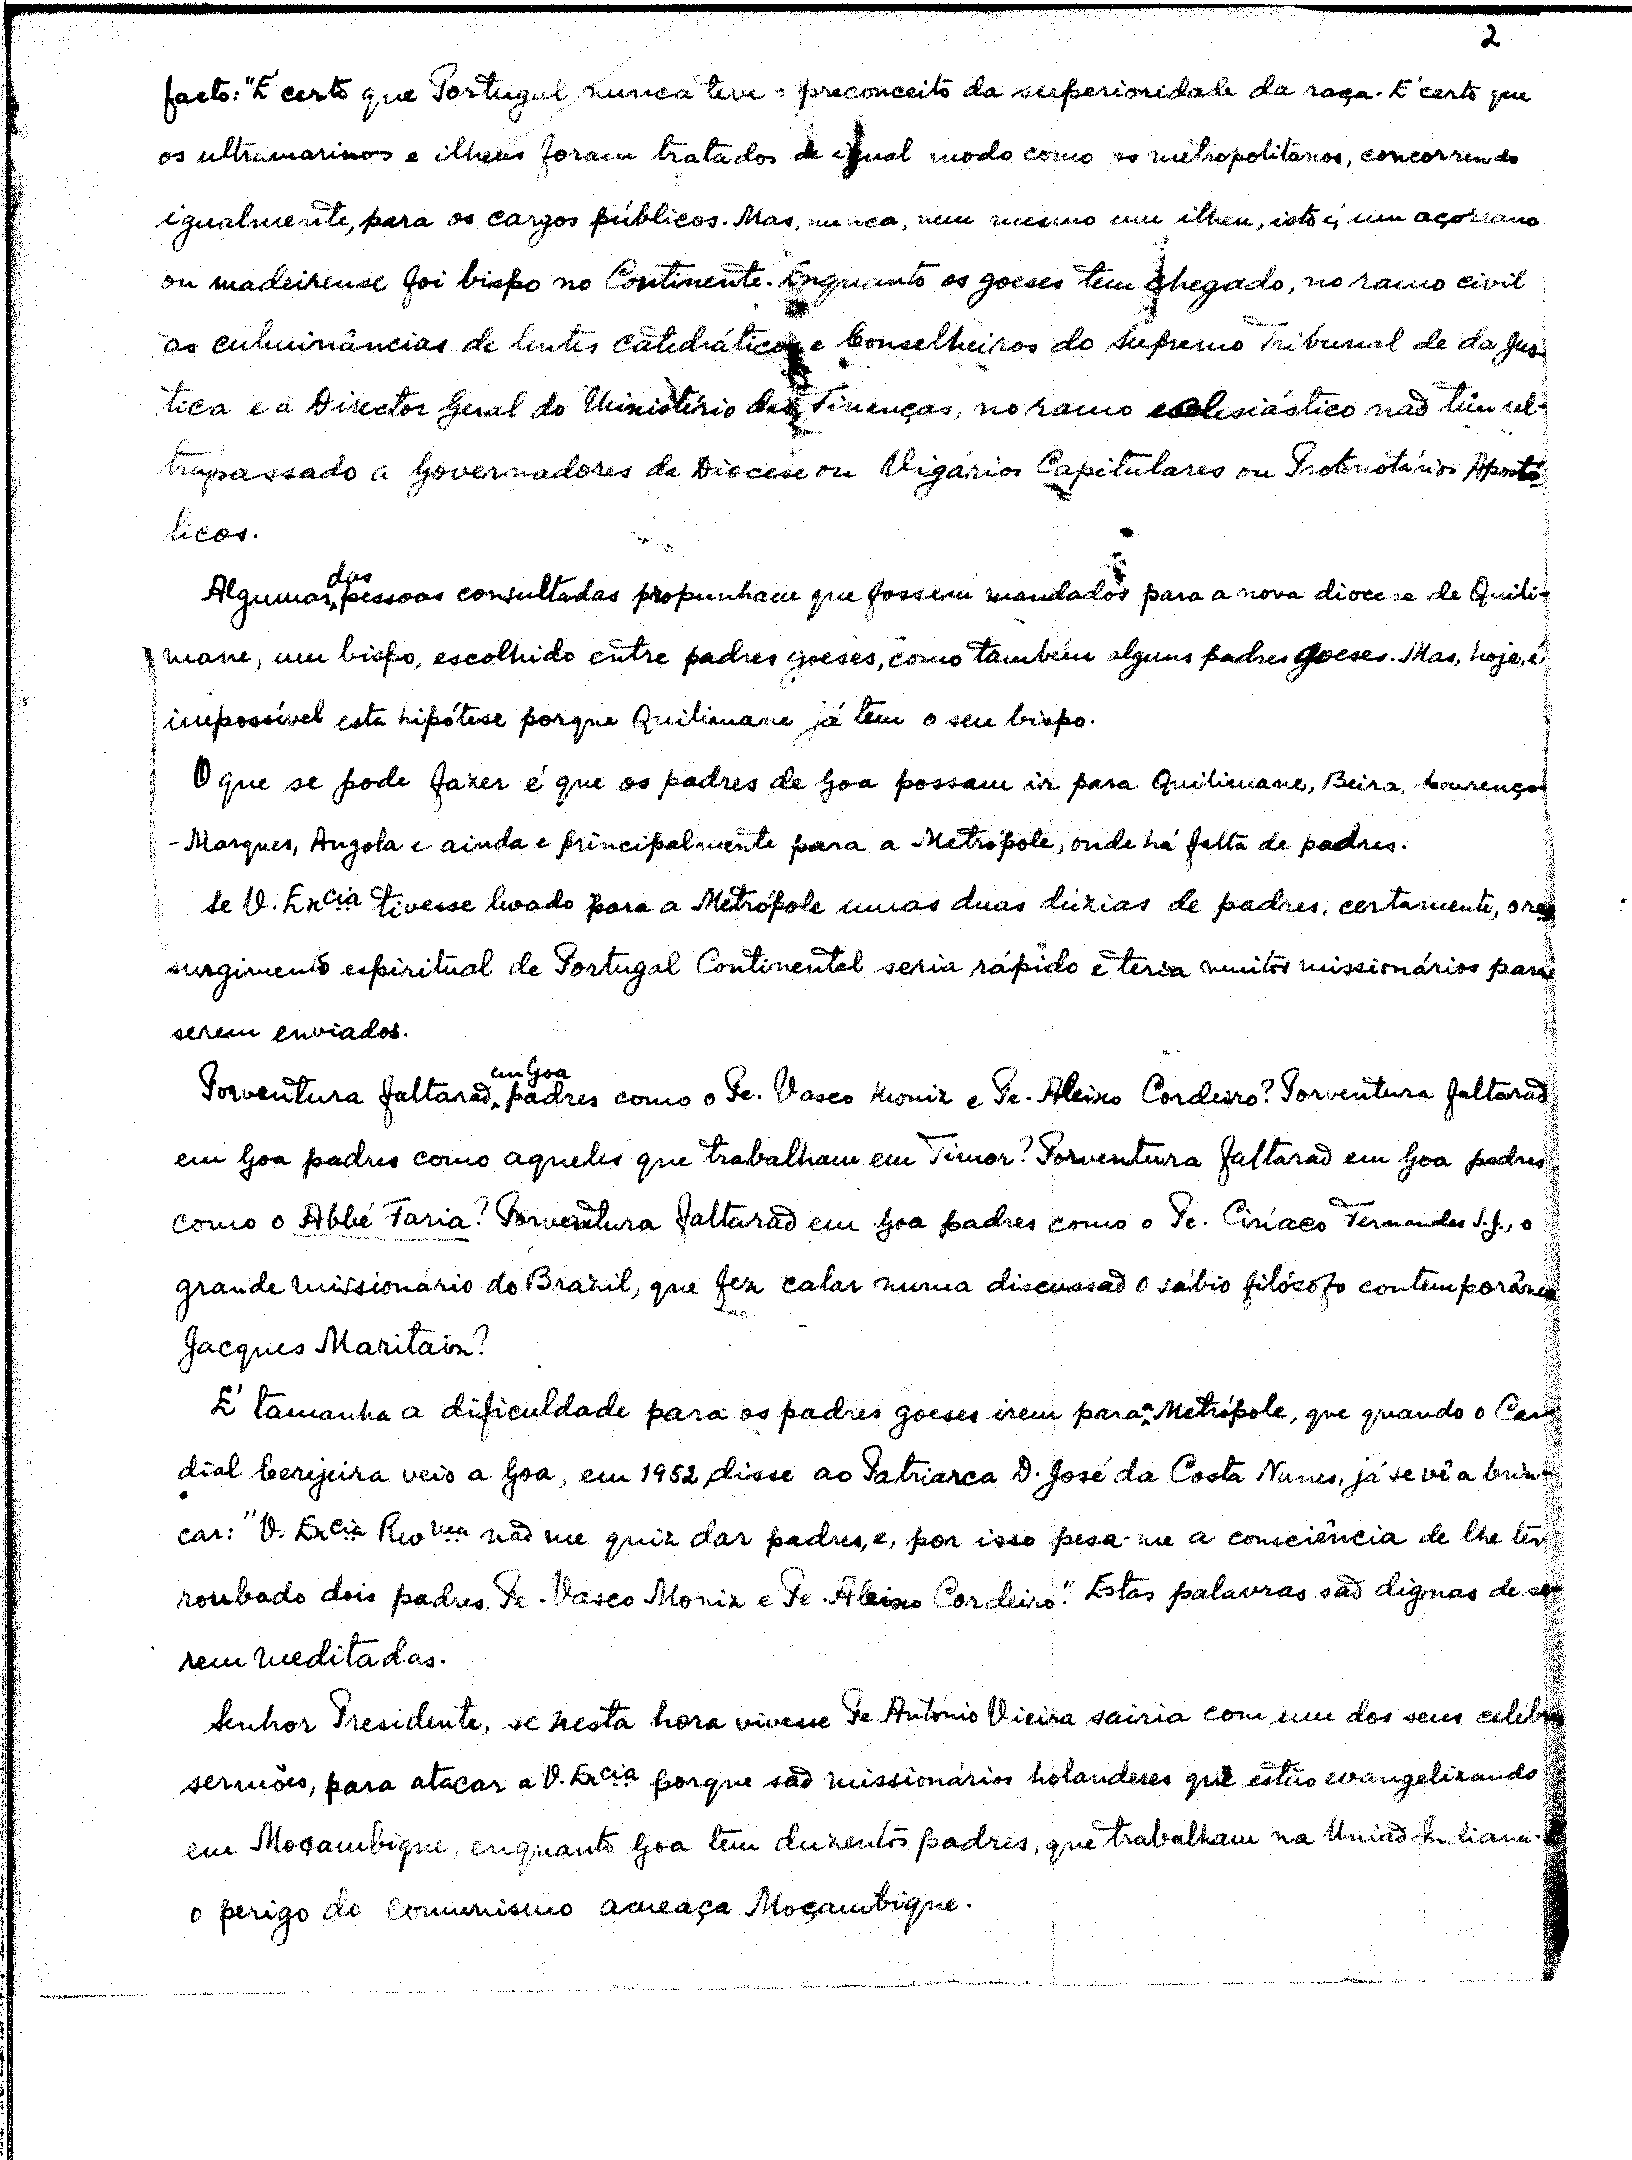 2
facto: "É certo que Portugal nunca teve o preconceito da superioridade da raça. É certo que
os ultramarinos e ilheus foram tratados de igual modo como os metropolitanos, concorrendo
igualmente, para os cargos públicos. Mas, nunca, nem mesmo um ilheu, isto é, um açoriano
ou madeirense foi bispo no Continente. Enquanto os goeses tem chegado, no ramo civil
as culminâncias de lentes catedráticos e Conselheiros do Supremo Tribunal de da Jus-
tiça e a Director Geral do Ministério das Finenças, no ramo eclesiástico não têm ul-
trapassado a Governadores de Diocese ou Vigários Capitulares ou Protonotários Apostó-
licos.
Algumas das pessoas consultadas propunham que fossem mandados para a nova diocese de Quili-
mane, um bispo, escolhido entre padres goeses, como também alguns padres goeses. Mas, hoje, é
impossível esta hipótese porque Quilimane já tem o seu bispo.
O que se pode fazer é que os padres de Goa possam ir para Quilimane, Beira, Lourenço
-Marques, Angola e ainda e principalmente para a Metrópole, onde há falta de padres.
Se V. Excia tivesse levado para a Metrópole umas duas dúzias de padres, certamente, o res
surgimento espiritual de Portugal Continental seria rápido e teria muitos missionários para
serem enviados.
Porventura faltarão em Goa padres como o Pe. Vasco Moniz e Pe. Aleixo Cordeiro? Porventura faltarão
em Goa padres como aqueles que trabalham em Timor? Porventura faltarão em Goa padres
como o Abbé Faria? Porventura faltarão em Goa padres como o Pe. Ciríaco Fernandes S.J., o
grande missionário do Brazil, que fez calar numa discussão o sábio filósofo contemporâneo
Jacques Maritain?
É tamanha a dificuldade para os padres goeses irem para a Metrópole, que quando o Car-
dial Cerejeira veio a Goa, em 1952, disse ao Patriarca D. José da Costa Nunes, já se vê a brin-
car: "V. Excia Revma não me quiz dar padres, e, por isso pesa-me a consciência de lhe ter
roubado dois padres, Pe. Vasco Moniz e Pe. Aleixo Cordeiro." Estas palavras são dignas de se-
rem meditadas.
Senhor Presidente, se nesta hora vivesse Pe António Vieira sairia com um dos seus celebres
sermões, para atacar a V. Excia porque são missionários holandeses que estão evangelizando
em Moçambique, enquanto Goa tem duzentos padres, que trabalham na União Indiana.
o perigo do comunismo ameaça Moçambique.